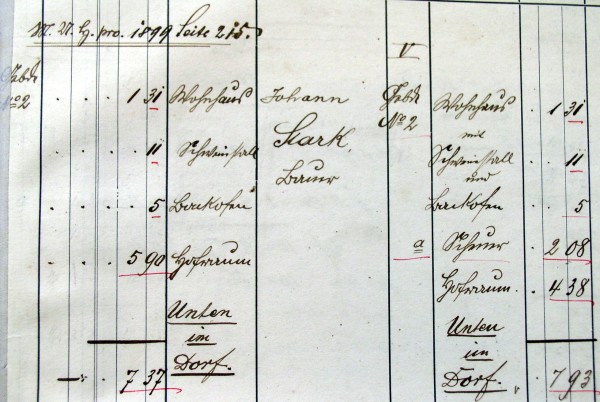 M. U. H. pro. 1899 Seite 215.
V
Gebde
No 2
1 31 Wohnhaus
11 Schweinstall
5 Backofen
5 90 Hofraum
Unten
im
Dorf.
7 37
Johann
Stark,
Bauer
Gebde
No 2
Wohnhaus 1 31
mit
Schweinstall 11
und
Backofen 5
a Scheuer 2 08
Hofraum. 4 38
Unten
im
Dorf. 7 93